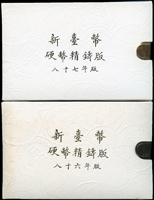 新臺幣
硬幣精鑄版
八十七年版
新臺幣
硬幣精鑄版
八十六年版